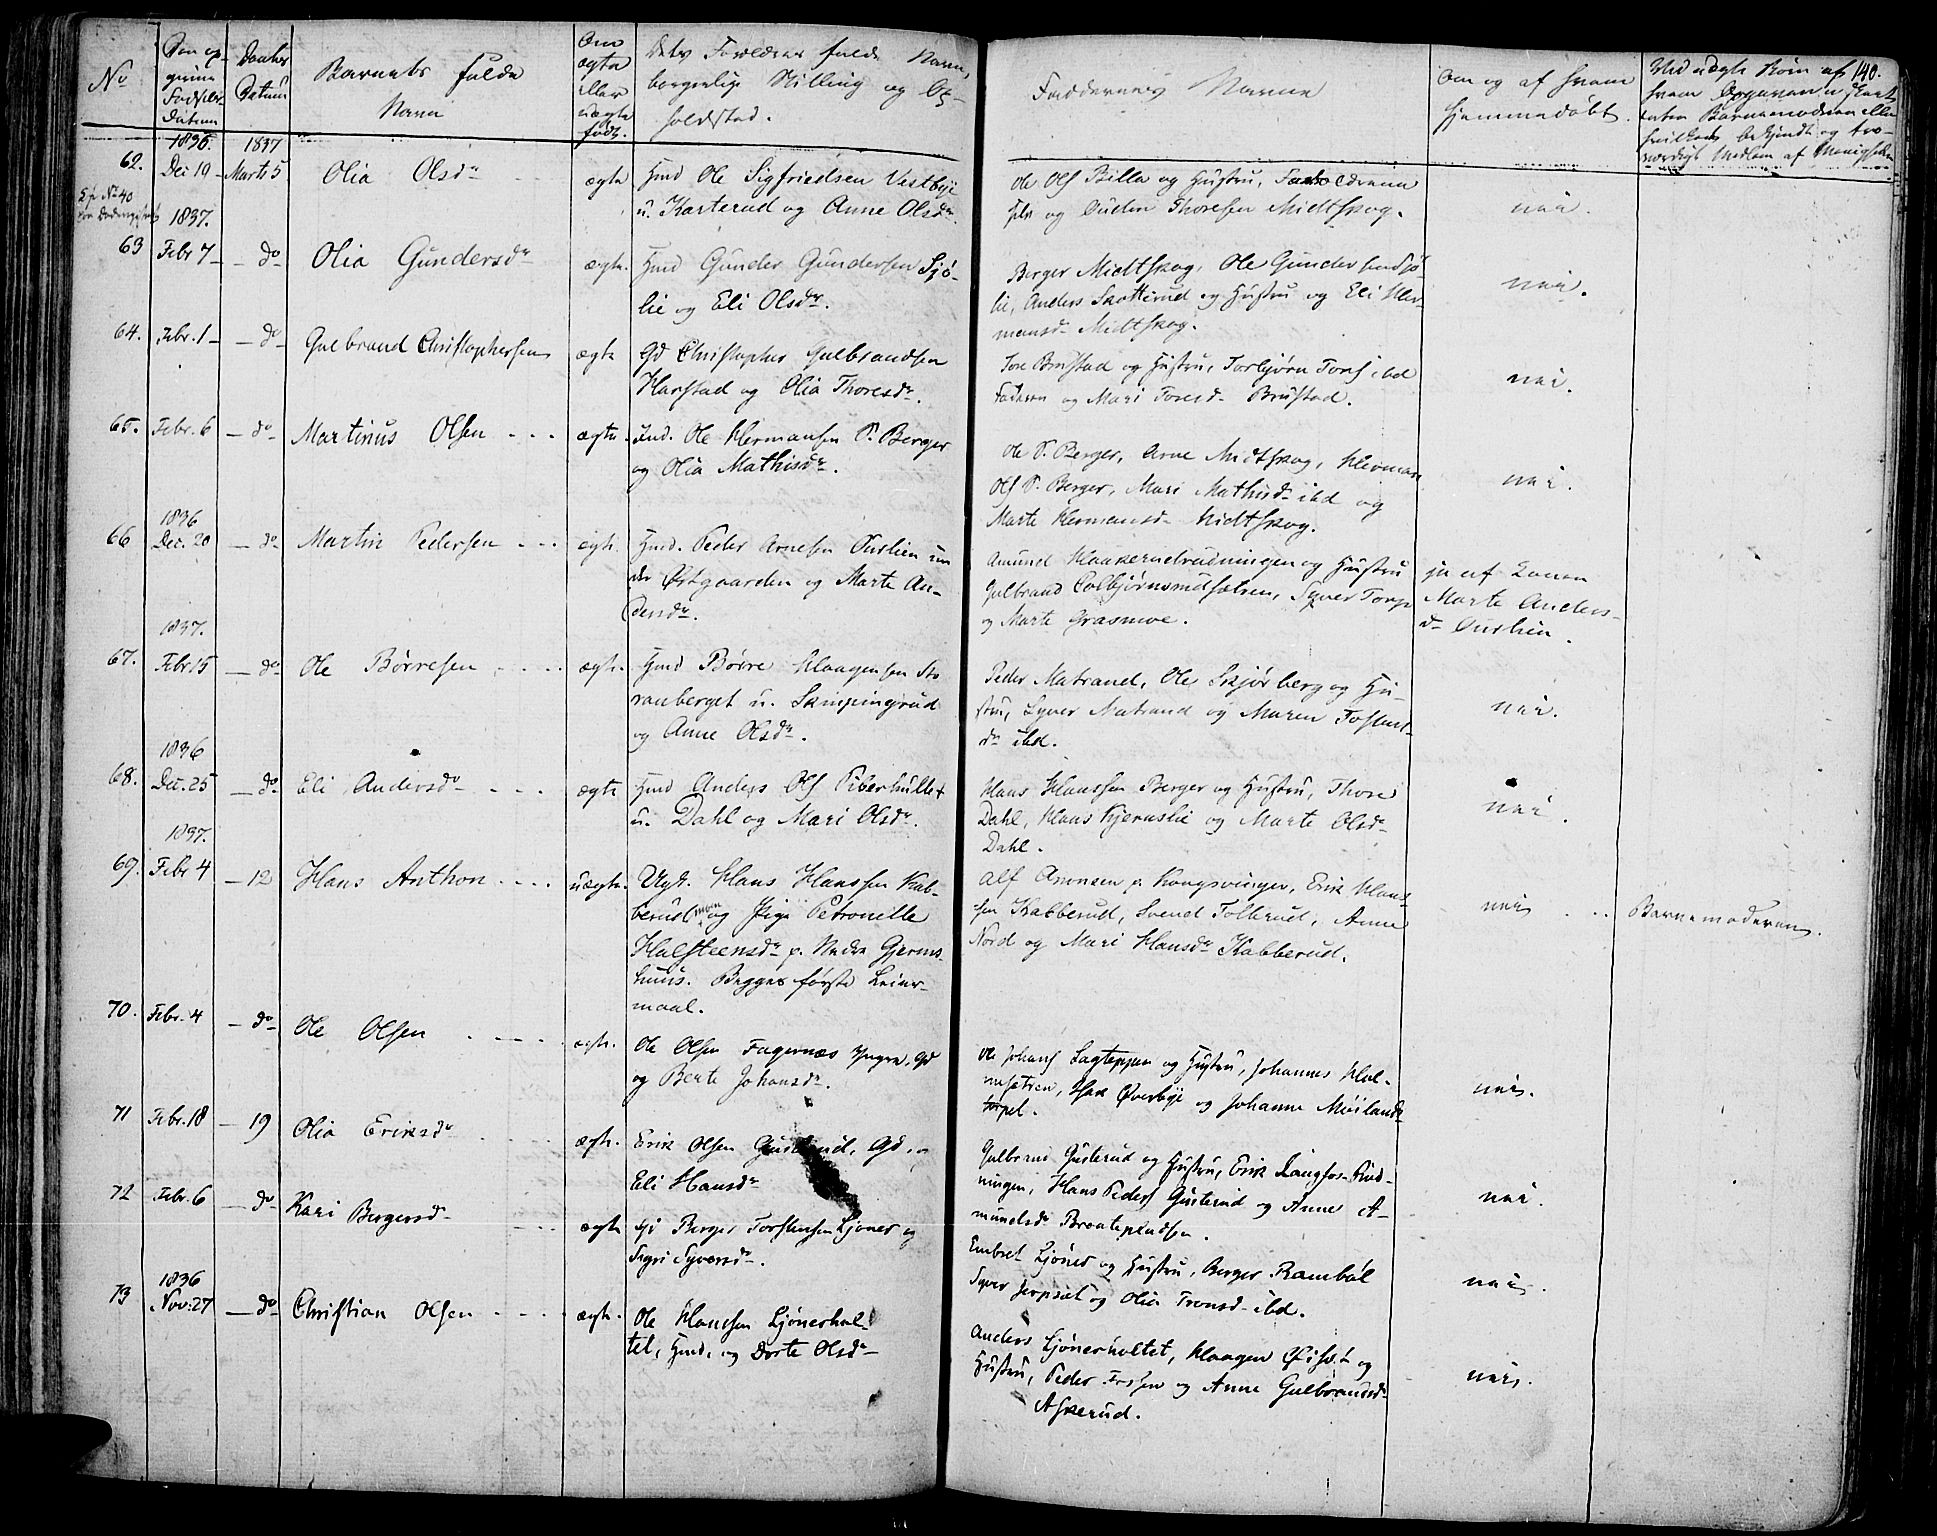 No
Daabs
Datum
Barnets fulde
Navn
Om
ægte
eller
uægte
født.
borgerlige Stilling og Op-
holdsted.
Faddernes Navne
Om og af hvem
hjemmedøbt.
140.
1836. 1837
62. Dec 19 - Marts 5 Olia Olsdr ægte Hmd Ole Sigfriedsen Vestbye
u. Karterud og Anne Olsdr.
Ole Ols Billa og Hustru, Forældrene
selv og Guden Thoresen Midtskog.
nei.
1837.
63 Febr 7 - do Olia Gundersdr ægte. Hmd Gunder Gundersen Sjö-
lie og Eli Olsdr.
Berger Midtskog, Ole Gundersen Sjö-
lie, Anders Skotterud og Hustru og Eli Her-
mansd Midtskog.
nei.
64. Febr. 1 - do Gulbrand Christophersen ægte Gd Christopher Gulbrandsen
Harstad og Olia Thoresdr.
Tore Brustad og Hustru, Torbjørn Tores ibd
Faderen og Mari Toresd Brustad.
nei.
65. Febr. 6 - do Martinus Olsen ægte Ind. Ole Hermansen P. Berger
og Olia Mathisdr.
Ole P. Berger, Arne Midtskog, Herman
Ols P. Berger, Mari Mathisd ibd og
Marte Hermansd Midtskog.
nei.
1836
66 Dec. 20 - do Martin Pedersen ægte. Hmd. Peder Arnesen Duslien un-
der Østgaarden og Marte An-
dersdr.
Amund Haakernelrudningen og Hustru
Gulbrand Colbjørnsrud, Syver Torp
og Marte Grasmoe.
ja af Konen
Marte Anders-
d Duslien.
1837.
67. Febr 15 - do Ole Börresen ægte. Hmd Børre Haagensen Sto
ranberget u. Skinpingrud
og Anne Olsdr.
Peder Matrand, Ole Skjörberg og Hu-
stru, Syver Matrand og Maren Tostens-
dr ibd.
nei.
1836
68. Dec. 25 - do Eli Andersdr ægte Hmd Anders Ols Piberhullet
u. Dahl og Mari Olsdr.
Hans Hanssen Berger og Hustru, Thore
Dahl, Hans Kjernslie og Marte Olsdr
Dahl.
nei.
1837.
69. Febr 4 - 12 Hans Anthon uægte. Ugk. Hans Hanssen Kab-
berud og Pige Petronelle
Halsteensdr p. Nedre Gjerms-
huus. Begges første Leier-
maal.
Alf Aronsen p. Kongsvinger, Erik Hans-
sen Kabberud, Svend Tollerud, Anne
Nord og Mari Hansdr Kabberud.
nei Barnemoderen.
70. Febr. 4 - do Ole Olsen ægte. Ole Olsen Fagernæs yngre, Gd
og Berte Johansdr.
Ole Johans Sagteppen og Hustru, Johannes Hol-
mestren, Hans Øverbye og Johanne Moilands
torpet.
nei.
71 Febr. 18 - 19 Olia Eriksdr ægte. Erik Olsen Gusterud, Gd. og
Eli Hansdr
Gulbrand Gusterud og Hustru, Erik Langfos Rud-
ningen, Hans Peders Gusterud og Anne A-
mundsdr Braatepladsen.
nei.
72 Febr. 6 - do Kari Bergersd ægte Gd Berger Torstensen Ljoner og
Sigri Syversdr.
Embret Ljöner og Hustru, Berger Rambøl
Syver og Olia Tronsd ibd.
nei.
1836
73 Nov: 27 - do Christian Olsen ægte. Ole Hansen Ljönerhol-
tet, Hmd. og Dorte Olsd
Anders Ljönerholtet, Haagen og
Hustru, Peder Fossen og Anne Gulbrandsd
Askerud.
nei.